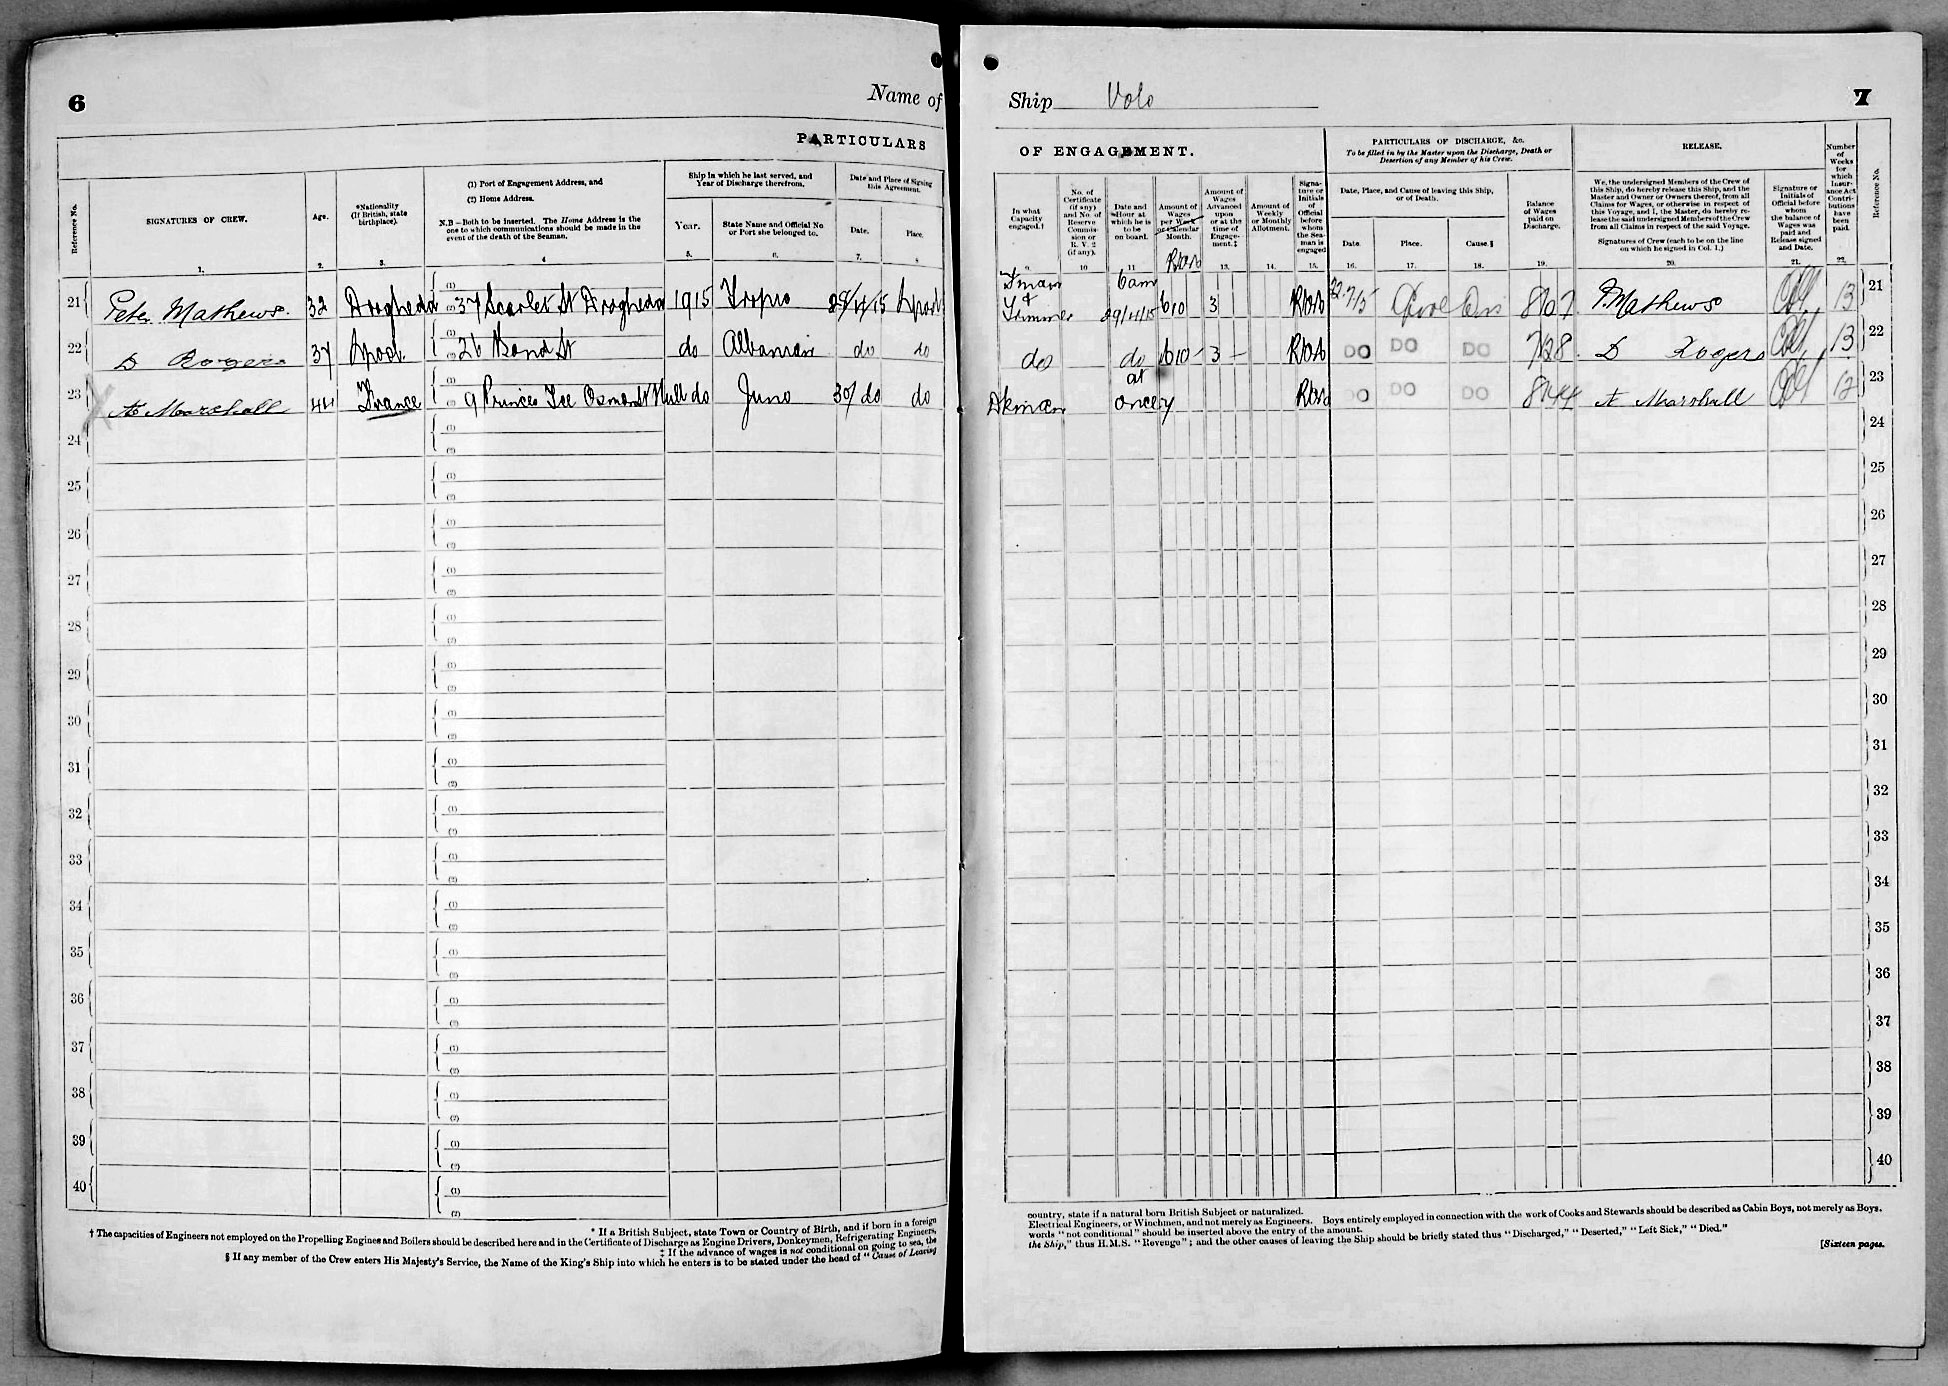 6
Name of
PARTICULARS
Reference No.
SIGNATURES OF CREW.
Age.
*Nationality
(If British, state
birthplace).
(1) Port of Engagement Address, and
(2) Home Address.
N.B—Both to be inserted. The Home Address is the
one to which communications should be made in the
event of the death of the Seaman.
Ship in which he last served, and
Year of Discharge therefrom.
Year.
State Name and Official No
or Port she belonged to.
Date and Place of Signing
this Agreement.
Date.
Place.
1. 2. 3. 4 5. 6. 7. 8
21 Peter Mathews. 32 Drogheda (1) (2) 37 Scarlet St Drogheda 1915 Tropio 29/4/15 Lpool
22 D Rogers 37 Lpool. (1) (2) 26 Bond St do Albanian do do
23 A Marshall 44 France (1) (2) 9 Princes Tce Osmond St Hull do Juno 30/ do do
24 (1) (2)
25 (1) (2)
26 (1) (2)
27 (1) (2)
28 (1) (2)
29 (1) (2)
30 (1) (2)
31 (1) (2)
32 (1) (2)
33 (1) (2)
34 (1) (2)
35 (1) (2)
36 (1) (2)
37 (1) (2)
38 (1) (2)
39 (1) (2)
40 (1) (2)
* If a British Subject, state Town or Country of Birth, and if born in a foreign
† The capacities of Engineers not employed on the Propelling Engines and Boilers should be described here and in the Certificate of Discharge as Engine Drivers, Donkeymen, Refrigerating Engineers,
‡ If the advance of wages is not conditional on going to sea, the
§ If any member of the Crew enters His Majesty's Service, the Name of the King's Ship into which he enters is to be stated under the head of "Cause of Leaving
Ship Volo
7
OF ENGAGEMENT.
PARTICULARS OF DISCHARGE, &c.
To be filled in by the Master upon the Discharge, Death or
Desertion of any Member of his Crew.
RELEASE.
Number
of
Weeks
for
which
Insur-
ance Act
Contri-
butions
have
been
paid.
Reference No.
In what
Capacity
engaged.†
No. of
Certificate
(if any)
and No. of
Reserve
Commis-
sion or
R. V. 2
(if any).
Date and
Hour at
which he is
to be
on board.
Amount of
Wages
per Week
or Calendar
Month.
Amount of
Wages
Advanced
upon
or at the
time of
Engage-
ment.‡
Amount of
Weekly
or Monthly
Allotment.
Signa-
ture or
Initials
of
Official
before
whom
the Sea-
man is
engaged
Date, Place, and Cause of leaving this Ship,
or of Death.
Date. Place. Cause.§
Balance
of Wages
paid on
Discharge.
We, the undersigned Members of the Crew of
this Ship, do hereby release this Ship, and the
Master and Owner or Owners thereof, from all
Claims for Wages, or otherwise in respect of
this Voyage, and I, the Master, do hereby re-
lease the said undersigned Members of the Crew
from all Claims in respect of the said Voyage.
Signatures of Crew (each to be on the line
on which he signed in Col. 1.)
Signature or
Initials of
Official before
whom
the balance of
Wages was
paid and
Release signed
and Date.
9. 10 11 13. 14. 15. 16. 17. 18. 19. 20. 21. 22.
Fman & Trimmer 6am 29/4/15 6 10 3 22.7/15 P. Mathews 13 21
do do 6 10 - 3 - DO DO DO 7 12 8 D Rogers 13 22
Dkman at once DO DO DO A Marshall 12 23
24
25
26
27
28
29
30
31
32
33
34
35
36
37
38
39
40
country, state if a natural born British Subject or naturalized.
Electrical Engineers, or Winchmen, and not merely as Engineers. Boys entirely employed in connection with the work of Cooks and Stewards should be described as Cabin Boys, not merely as Boys.
words "not conditional" should be inserted above the entry of the amount.
the Ship," thus H.M.S. "Revenge"; and the other causes of leaving the Ship should be briefly stated thus "Discharged," "Deserted," "Left Sick," "Died."
[Sixteen pages.